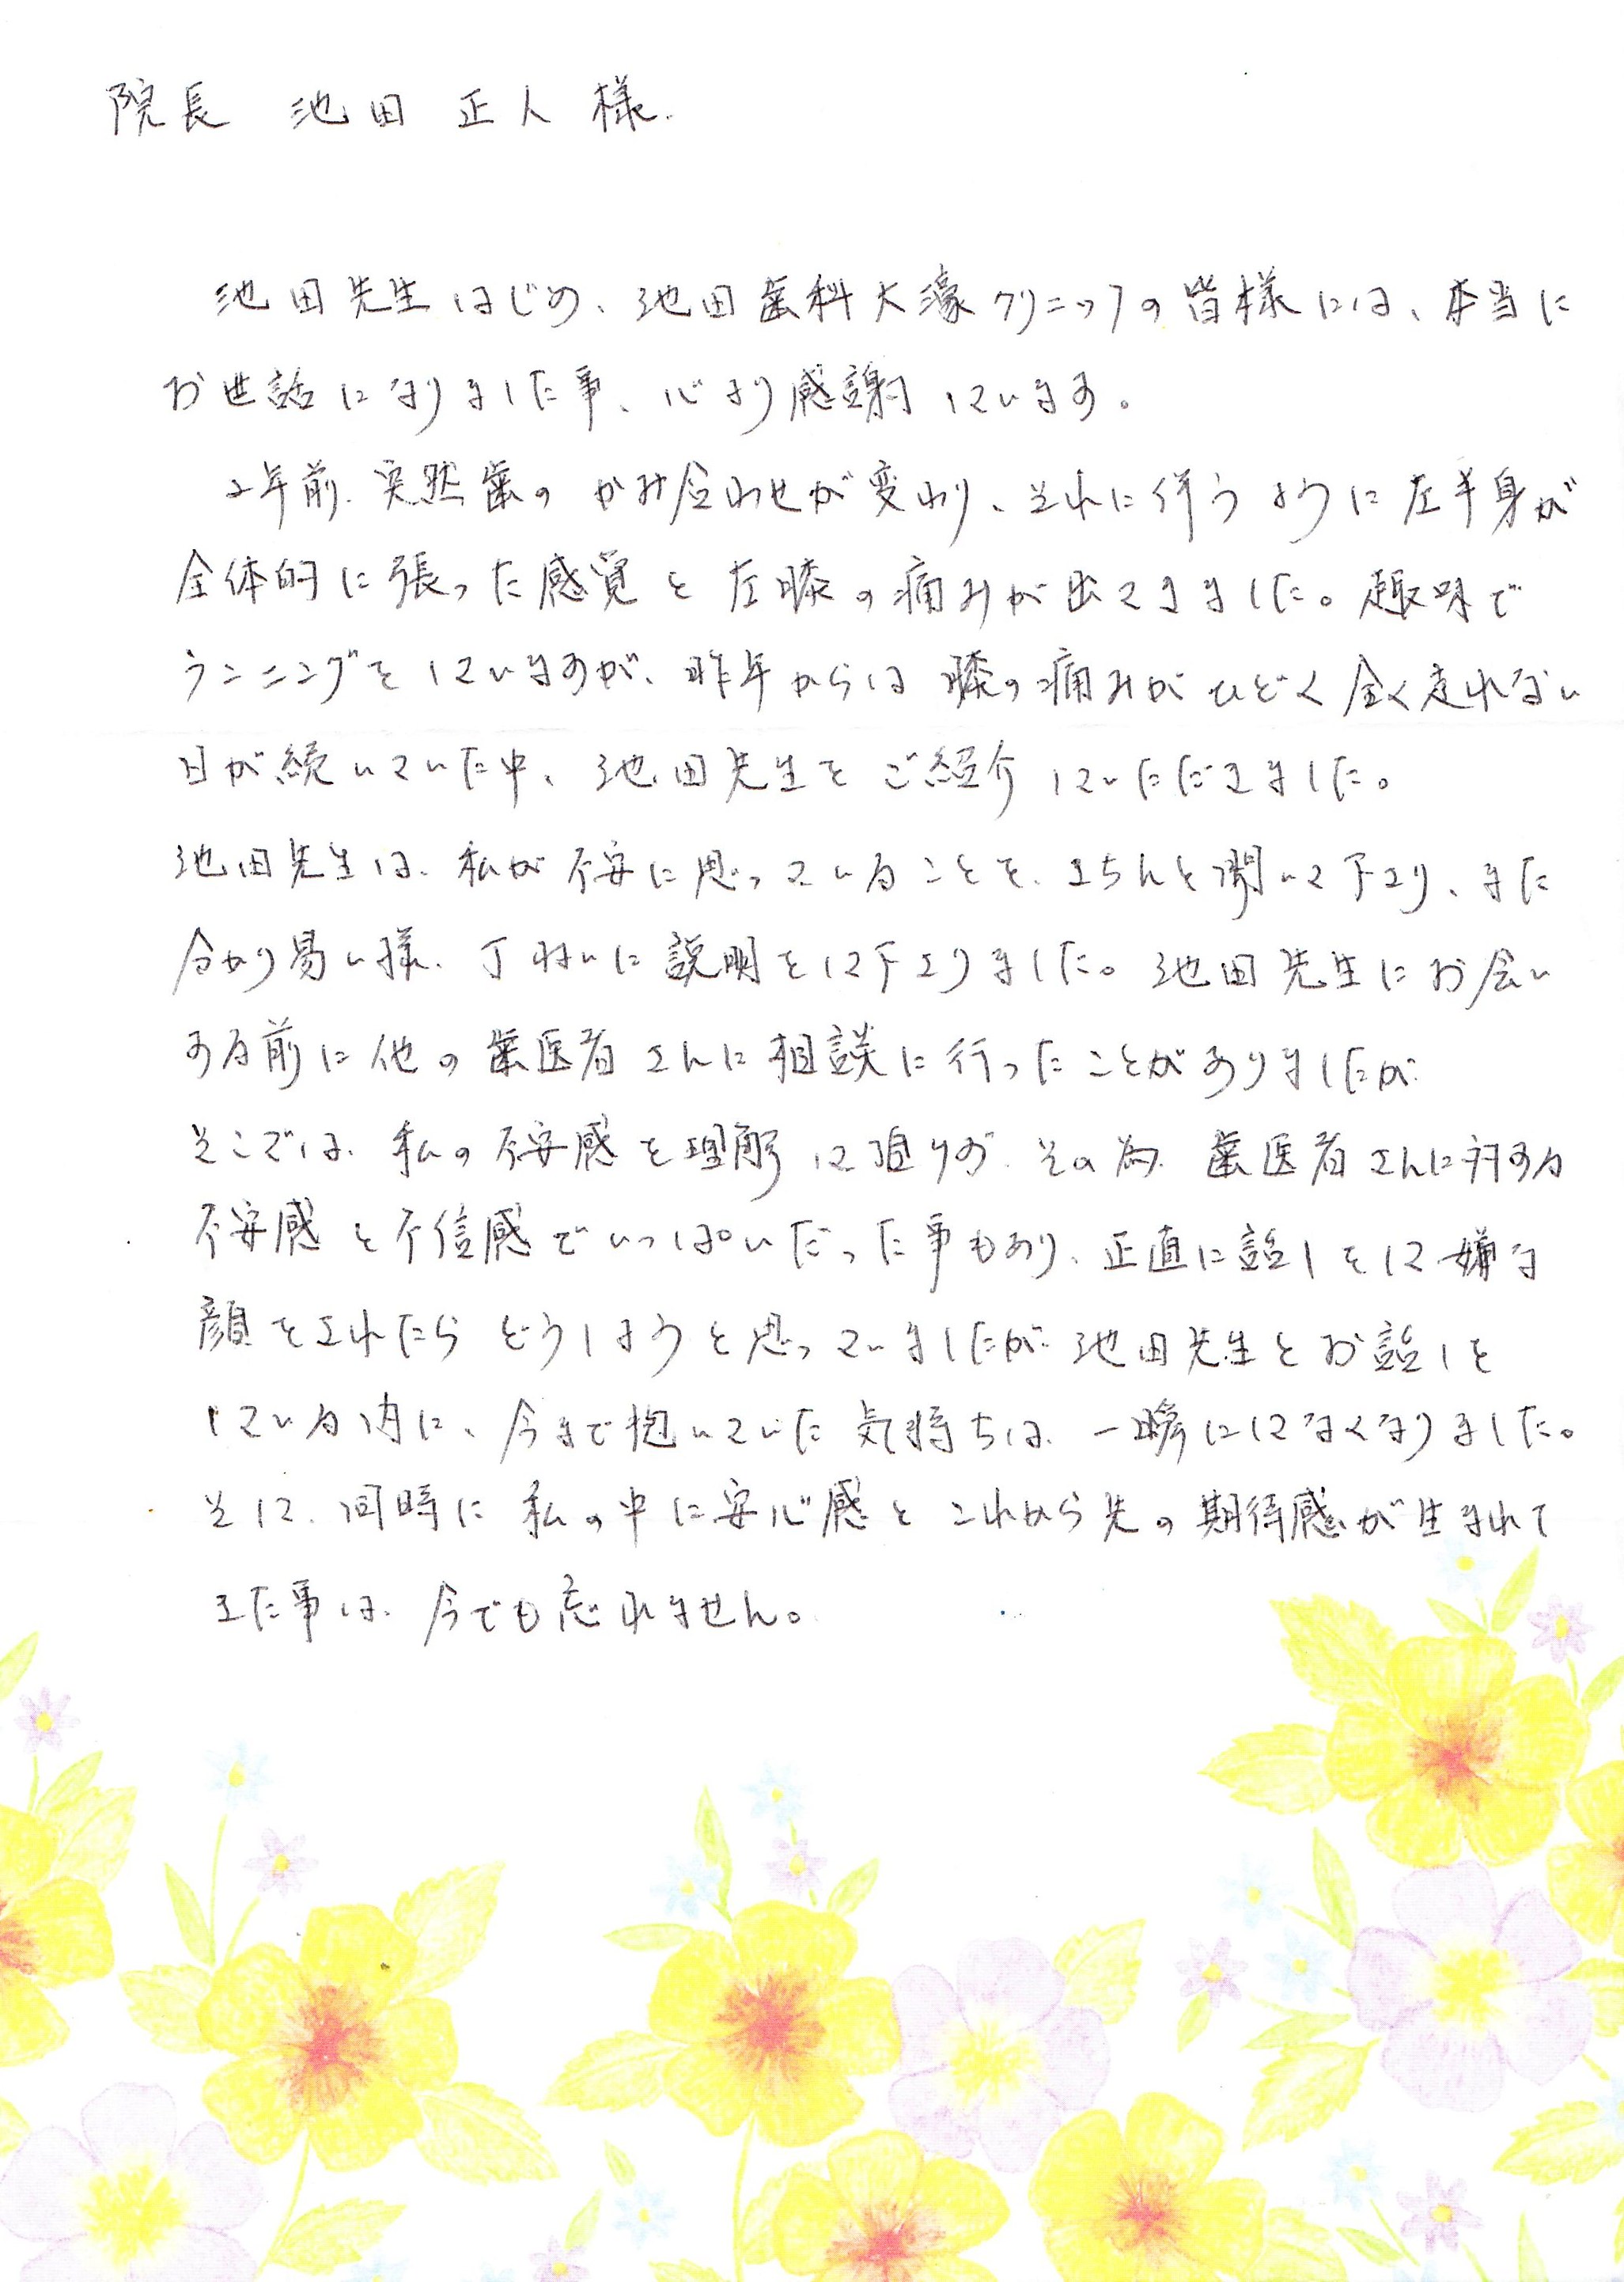 院長 池田 正人 様.
池田先生はじめ、池田歯科大濠クリニックの皆様には、本当に
お世話になりました事、心より感謝しています。
2年前、突然歯のかみ合わせが変わり、それに伴うように左半身が
全体的に張った感覚と左膝の痛みが出てきました。趣味で
ランニングをしていますが、昨年からは膝の痛みがひどく全く走れない
日が続いていた中、池田先生をご紹介していただきました。
池田先生は、私が不安に思っていることを、きちんと聞いて下さり、また
分かり易い様、丁ねいに説明をして下さりました。池田先生にお会い
する前に他の歯医者さんに相談に行ったことがありましたが
そこでは、私の不安感を理解して頂けず、その為、歯医者さんに対する
不安感と不信感でいっぱいだった事もあり、正直に話しをして嫌な
顔をされたらどうしようと思っていましたが、池田先生とお話しを
している内に、今まで抱いていた気持ちは、一瞬にしてなくなりました。
そして、同時に私の中に安心感とこれから先の期待感が生まれて
きた事は、今でも忘れません。